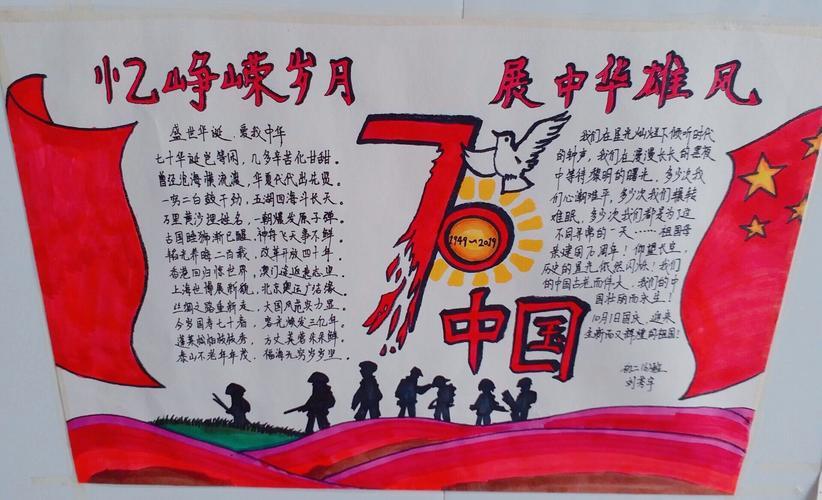 忆峥嵘岁月
展中华雄风
盛世华诞 爱我中华
七十华诞岂等闲，几多辛苦化甘甜。
曾经沧海横流渡，华夏代代出花贤。
一穷二白鼓干劲，五湖四海斗长天。
万里黄沙埋姓名，一朝爆发原子弹。
古国睡狮渐已醒，神舟飞天事不鲜。
韬光养晦二百载，改革开放四十年。
香港回归惊世界，澳门
上海世博展新貌，北京奥运广结缘。
丝绸之路重新走，大国风范实力显。
今岁国寿七十者，岁光焕发三亿年。
蓬莱
泰山不老年年茂，福海无穷岁岁坚。
70
1949～2019
中国
我们在星光灿烂下倾听时代
的钟声，我们在漫漫长长的黑夜
中等待黎明的曙光，多少次我
们心潮难平，多少次我们辗转
难眠，多少次我们都是为了这
不同寻常的一天……祖国母
亲建国70周年！仰望长空，
历史的星光依然闪烁！我们
的中国古老而伟大，我们的中
国壮丽而永生！
10月1日国庆，迎来
全新而又辉煌的祖国！
初二
刘